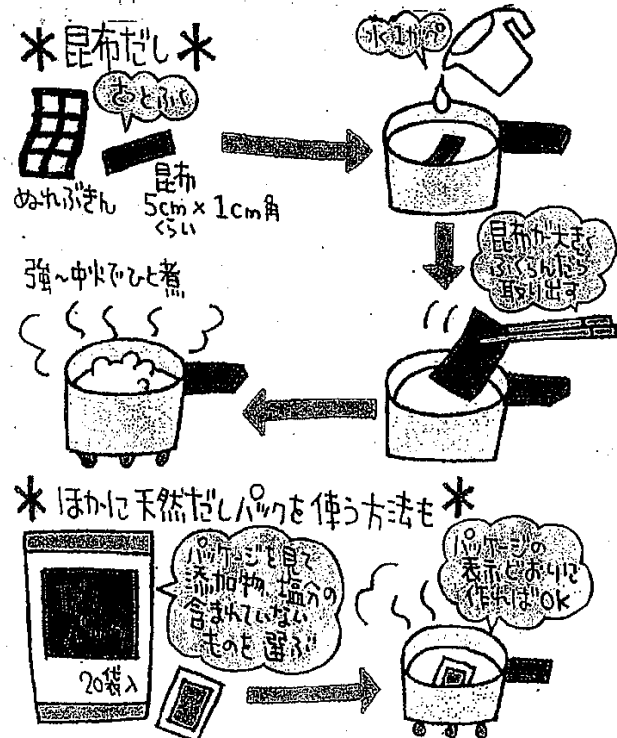 *昆布だし*
さっとふく
ぬれぶきん
昆布
5cm×1cm角
くらい
水1カップ
昆布が大きく
ふくらんだら
取り出す
強〜中火でひと煮
*ほかに天然だしパックを使う方法も*
パッケージを見て
添加物、塩分の
含まれていない
ものを選ぶ
20袋入
パッケージの
表示どおりに
作ればOK